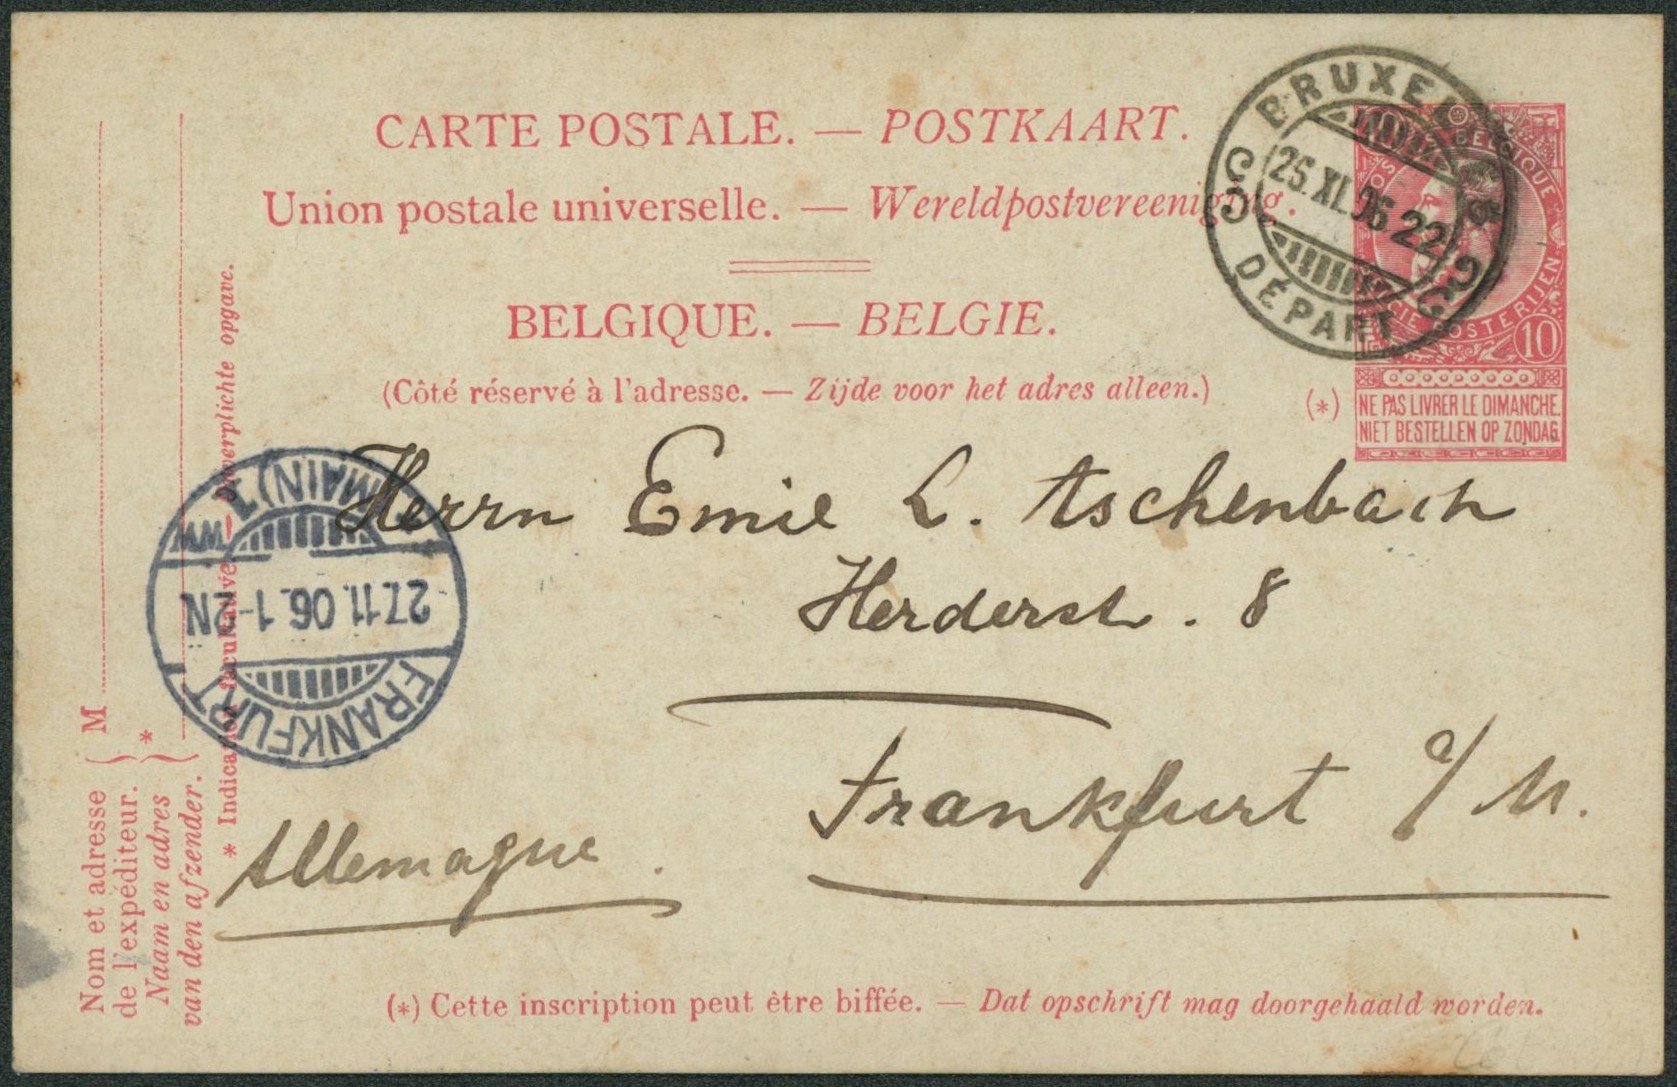 CARTE POSTALE. — POSTKAART.
Union postale universelle. — Wereldpostvereeniging.
BELGIQUE. — BELGIE.
(Côté réservé à l'adresse. — Zijde voor het adres alleen.)
BRUXEL
25.XI.06 22
DÉPART
10
BELGIQUE
POSTERIJEN.
10
(*)
NE PAS LIVRER LE DIMANCHE.
NIET BESTELLEN OP ZONDAG.
Herrn Emil L. Aschenbach
Herderst. 8
Frankfurt a/M.
Allemagne.
FRANKFURT
27.11.06.1-2N
(MAIN) 1
Nom et adresse
de l'expéditeur.
Naam en adres
van den afzender.
M
*
* Indication facultative — Onverplichte opgave.
(*) Cette inscription peut être biffée. — Dat opschrift mag doorgehaald worden.